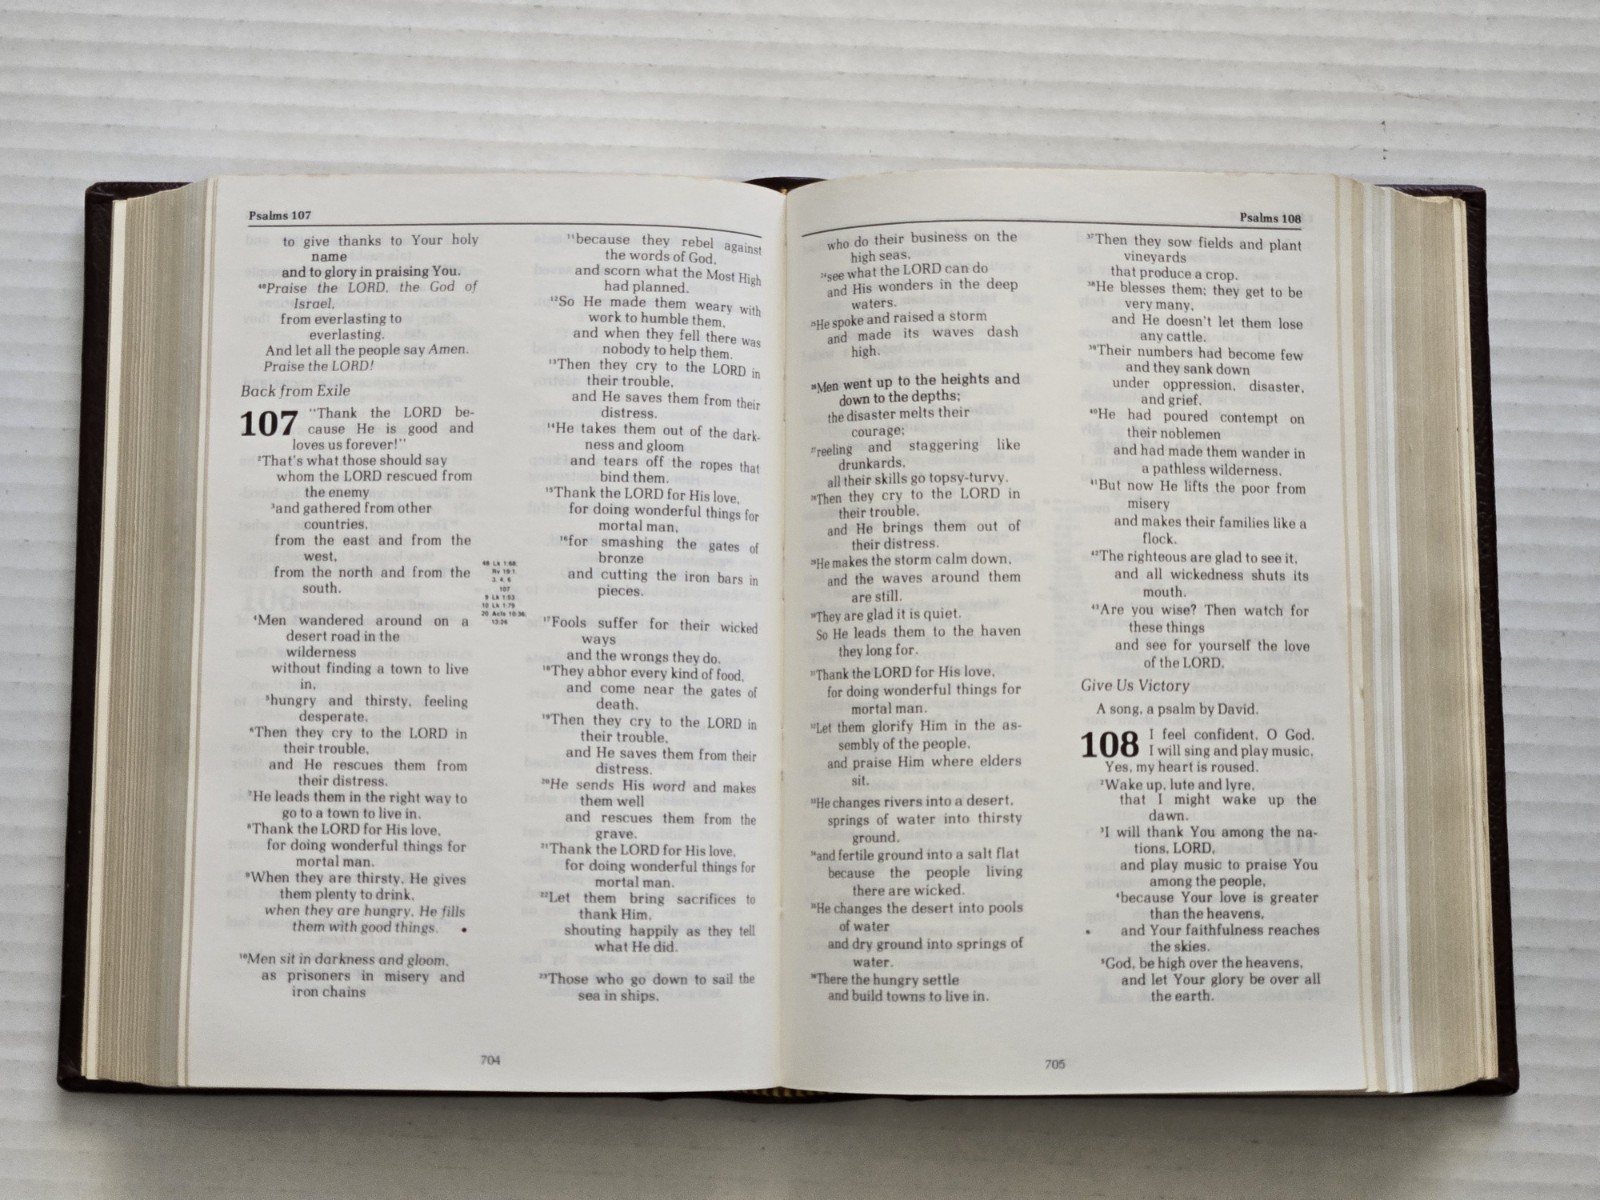 Psalms 107
to give thanks to Your holy
name
and to glory in praising You.
⁴⁸Praise the LORD, the God of
Israel,
from everlasting to
everlasting.
And let all the people say Amen.
Praise the LORD!
Back from Exile
107 "Thank the LORD be-
cause He is good and
loves us forever!"
²That's what those should say
whom the LORD rescued from
the enemy
³and gathered from other
countries,
from the east and from the
west,
from the north and from the
south.
⁴Men wandered around on a
desert road in the
wilderness
without finding a town to live
in,
⁵hungry and thirsty, feeling
desperate.
⁶Then they cry to the LORD in
their trouble,
and He rescues them from
their distress.
⁷He leads them in the right way to
go to a town to live in.
⁸Thank the LORD for His love,
for doing wonderful things for
mortal man.
⁹When they are thirsty, He gives
them plenty to drink,
when they are hungry, He fills
them with good things. •
¹⁰Men sit in darkness and gloom,
as prisoners in misery and
iron chains
48 Lk 1:68;
Rv 19:1,
3, 4, 6
107
9 Lk 1:53
10 Lk 1:79
20 Acts 10:36;
13:26
¹¹because they rebel against
the words of God,
and scorn what the Most High
had planned.
¹²So He made them weary with
work to humble them,
and when they fell there was
nobody to help them.
¹³Then they cry to the LORD in
their trouble,
and He saves them from their
distress.
¹⁴He takes them out of the dark-
ness and gloom
and tears off the ropes that
bind them.
¹⁵Thank the LORD for His love,
for doing wonderful things for
mortal man,
¹⁶for smashing the gates of
bronze
and cutting the iron bars in
pieces.
¹⁷Fools suffer for their wicked
ways
and the wrongs they do.
¹⁸They abhor every kind of food,
and come near the gates of
death.
¹⁹Then they cry to the LORD in
their trouble,
and He saves them from their
distress.
²⁰He sends His word and makes
them well
and rescues them from the
grave.
²¹Thank the LORD for His love,
for doing wonderful things for
mortal man.
²²Let them bring sacrifices to
thank Him,
shouting happily as they tell
what He did.
²³Those who go down to sail the
sea in ships,
704
Psalms 108
who do their business on the
high seas,
²⁴see what the LORD can do
and His wonders in the deep
waters.
²⁵He spoke and raised a storm
and made its waves dash
high.
²⁶Men went up to the heights and
down to the depths;
the disaster melts their
courage;
²⁷reeling and staggering like
drunkards,
all their skills go topsy-turvy.
²⁸Then they cry to the LORD in
their trouble,
and He brings them out of
their distress.
²⁹He makes the storm calm down,
and the waves around them
are still.
³⁰They are glad it is quiet.
So He leads them to the haven
they long for.
³¹Thank the LORD for His love,
for doing wonderful things for
mortal man.
³²Let them glorify Him in the as-
sembly of the people,
and praise Him where elders
sit.
³³He changes rivers into a desert,
springs of water into thirsty
ground,
³⁴and fertile ground into a salt flat
because the people living
there are wicked.
³⁵He changes the desert into pools
of water
and dry ground into springs of
water.
³⁶There the hungry settle
and build towns to live in.
³⁷Then they sow fields and plant
vineyards
that produce a crop.
³⁸He blesses them; they get to be
very many,
and He doesn't let them lose
any cattle.
³⁹Their numbers had become few
and they sank down
under oppression, disaster,
and grief.
⁴⁰He had poured contempt on
their noblemen
and had made them wander in
a pathless wilderness.
⁴¹But now He lifts the poor from
misery
and makes their families like a
flock.
⁴²The righteous are glad to see it,
and all wickedness shuts its
mouth.
⁴³Are you wise? Then watch for
these things
and see for yourself the love
of the LORD.
Give Us Victory
A song, a psalm by David.
108 I feel confident, O God.
I will sing and play music.
Yes, my heart is roused.
²Wake up, lute and lyre,
that I might wake up the
dawn.
³I will thank You among the na-
tions, LORD,
and play music to praise You
among the people,
⁴because Your love is greater
than the heavens,
• and Your faithfulness reaches
the skies.
⁵God, be high over the heavens,
and let Your glory be over all
the earth.
705